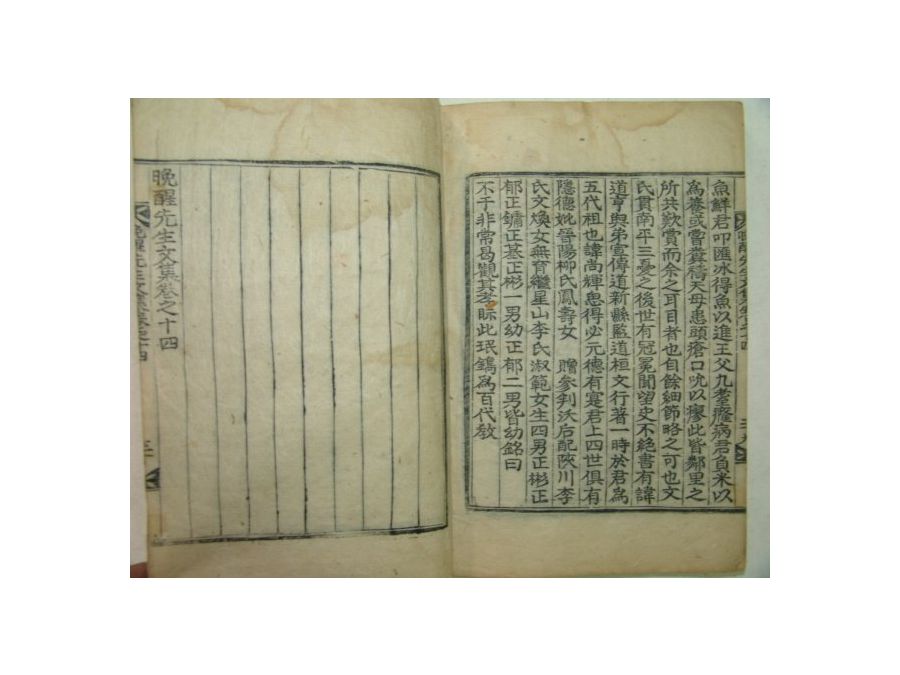 魚鮮君叩匯氷得魚以進王父九耋癃病君負米以
爲養或嘗糞禱天母患頭瘡口吮以瘳此皆鄰里之
所共歎賞而余之耳目者也自餘細節略之可也文
氏貫南平三憂之後世有冠冕聞望史不絶書有諱
道亨與弟宣傳道新縣監道桓文行著一時於君爲
五代祖也諱尚輝思得必元德有寔君上四世俱有
隱德妣晉陽柳氏鳳壽女 贈參判沃后配陜川李
氏文煥女無育繼星山李氏淑範女生四男正彬正
郁正鏞正基正彬一男幼正郁二男皆幼銘曰
不于非常曷觀其孝眎此珉鐫爲百代敎
晩醒先生文集卷之十四
晩醒先生文集卷之十四